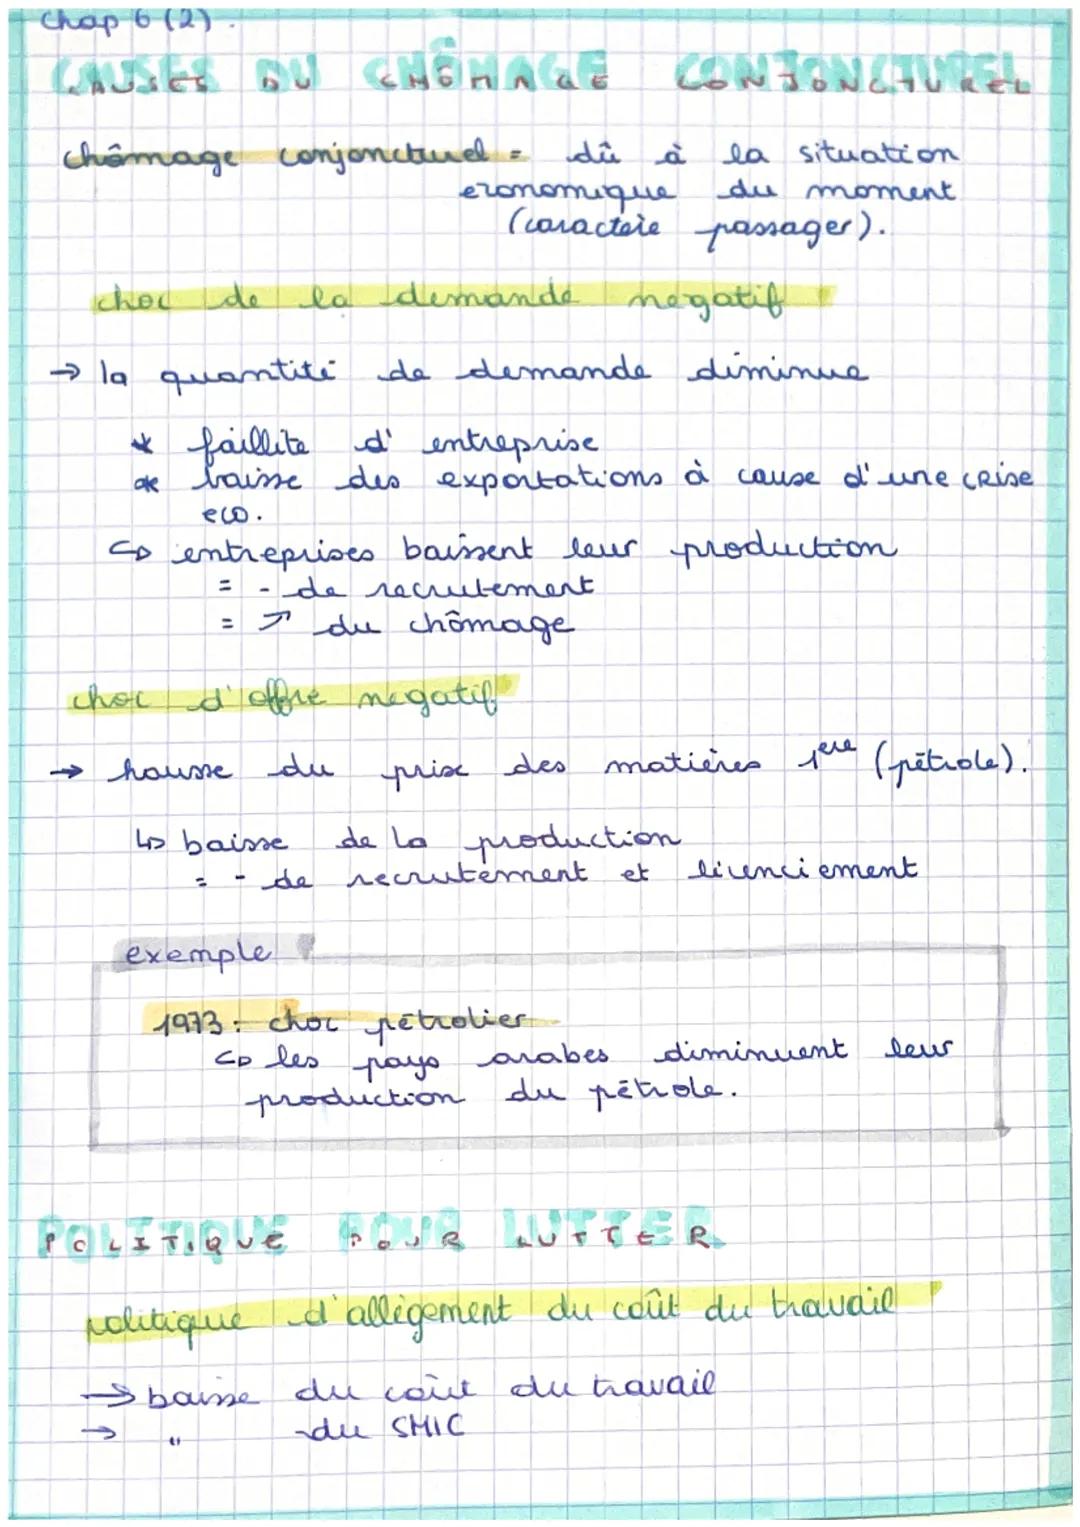 Chap 6 (2).
CAUSES DU CHÔMAGE CONJONCTUREL
chômage conjoncturel = dû à la situation
economique du moment
(caractere passager).
choc de la demande negatif
→ la quantité de demande diminue
* faillite d'entreprise
* baisse des exportations à cause d'une crise
eco.
↳ entreprises baissent leur production
= - de recrutement
= ↗ du chômage
choc d'offre negatif
→ hausse du prix des matières 1ere (pétrole).
↳ baisse de la production
= - de recrutement et licenciement
exemple
1973 : choc pétrolier
↳ les pays arabes diminuent leur
production du pétrole.
POLITIQUE POUR LUTTER
politique d'allègement du coût du travail
→ baisse du coût du travail
→ " du SMIC